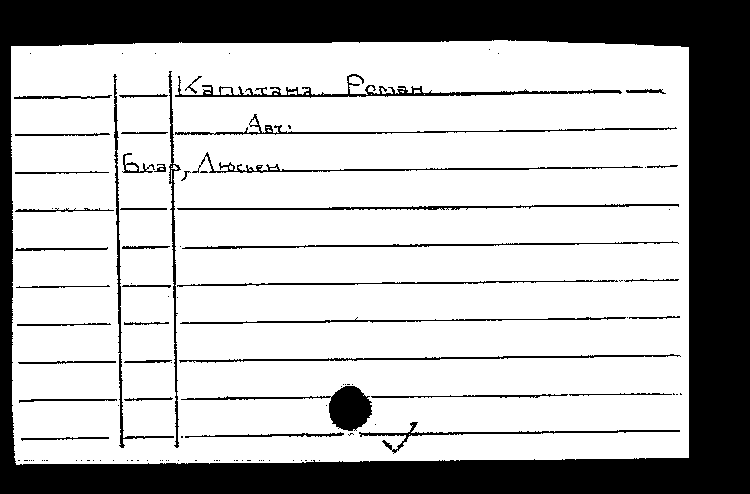 Капитана. Роман.
Авт:
Биар, Люсьен.